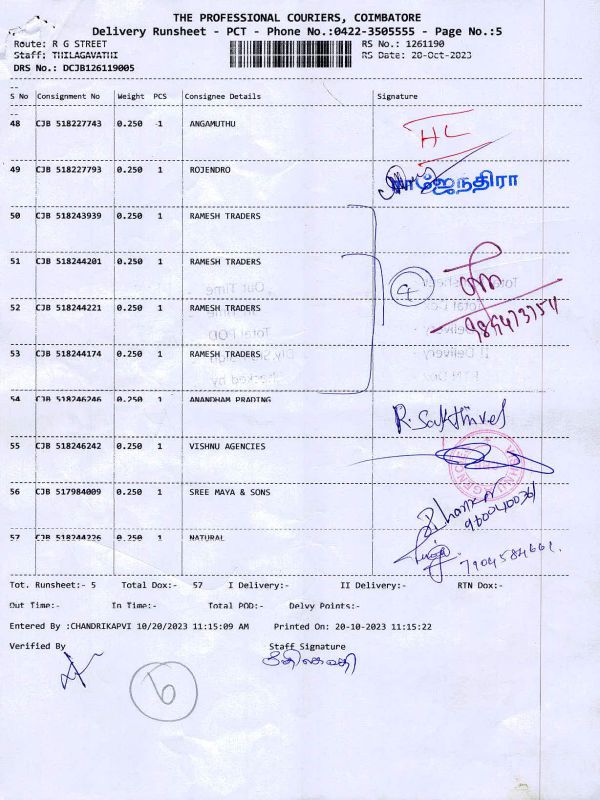 THE PROFESSIONAL COURIERS, COIMBATORE
Delivery Runsheet - PCT - Phone No.:0422-3505555 - Page No.:5
Route: R G STREET RS No.: 1261190
Staff: THILAGAVATHI RS Date: 20-Oct-2023
DRS No.: DCJB126119005
S No Consignment No Weight PCS Consignee Details Signature
48 CJB 518227743 0.250 1 ANGAMUTHU HL
49 CJB 518227793 0.250 1 ROJENDRO
50 CJB 518243939 0.250 1 RAMESH TRADERS
51 CJB 518244201 0.250 1 RAMESH TRADERS
52 CJB 518244221 0.250 1 RAMESH TRADERS
53 CJB 518244174 0.250 1 RAMESH TRADERS
54 CJB 518246246 0.250 1 ANANDHAM PRADING R. Sakthivel
55 CJB 518246242 0.250 1 VISHNU AGENCIES
56 CJB 517984009 0.250 1 SREE MAYA & SONS
57 CJB 518244226 0.250 1 NATURAL 7904584661.
Tot. Runsheet:- 5 Total Dox:- 57 I Delivery:- II Delivery:- RTN Dox:-
Out Time:- In Time:- Total POD:- Delvy Points:-
Entered By :CHANDRIKAPVI 10/20/2023 11:15:09 AM Printed On: 20-10-2023 11:15:22
Verified By Staff Signature
6